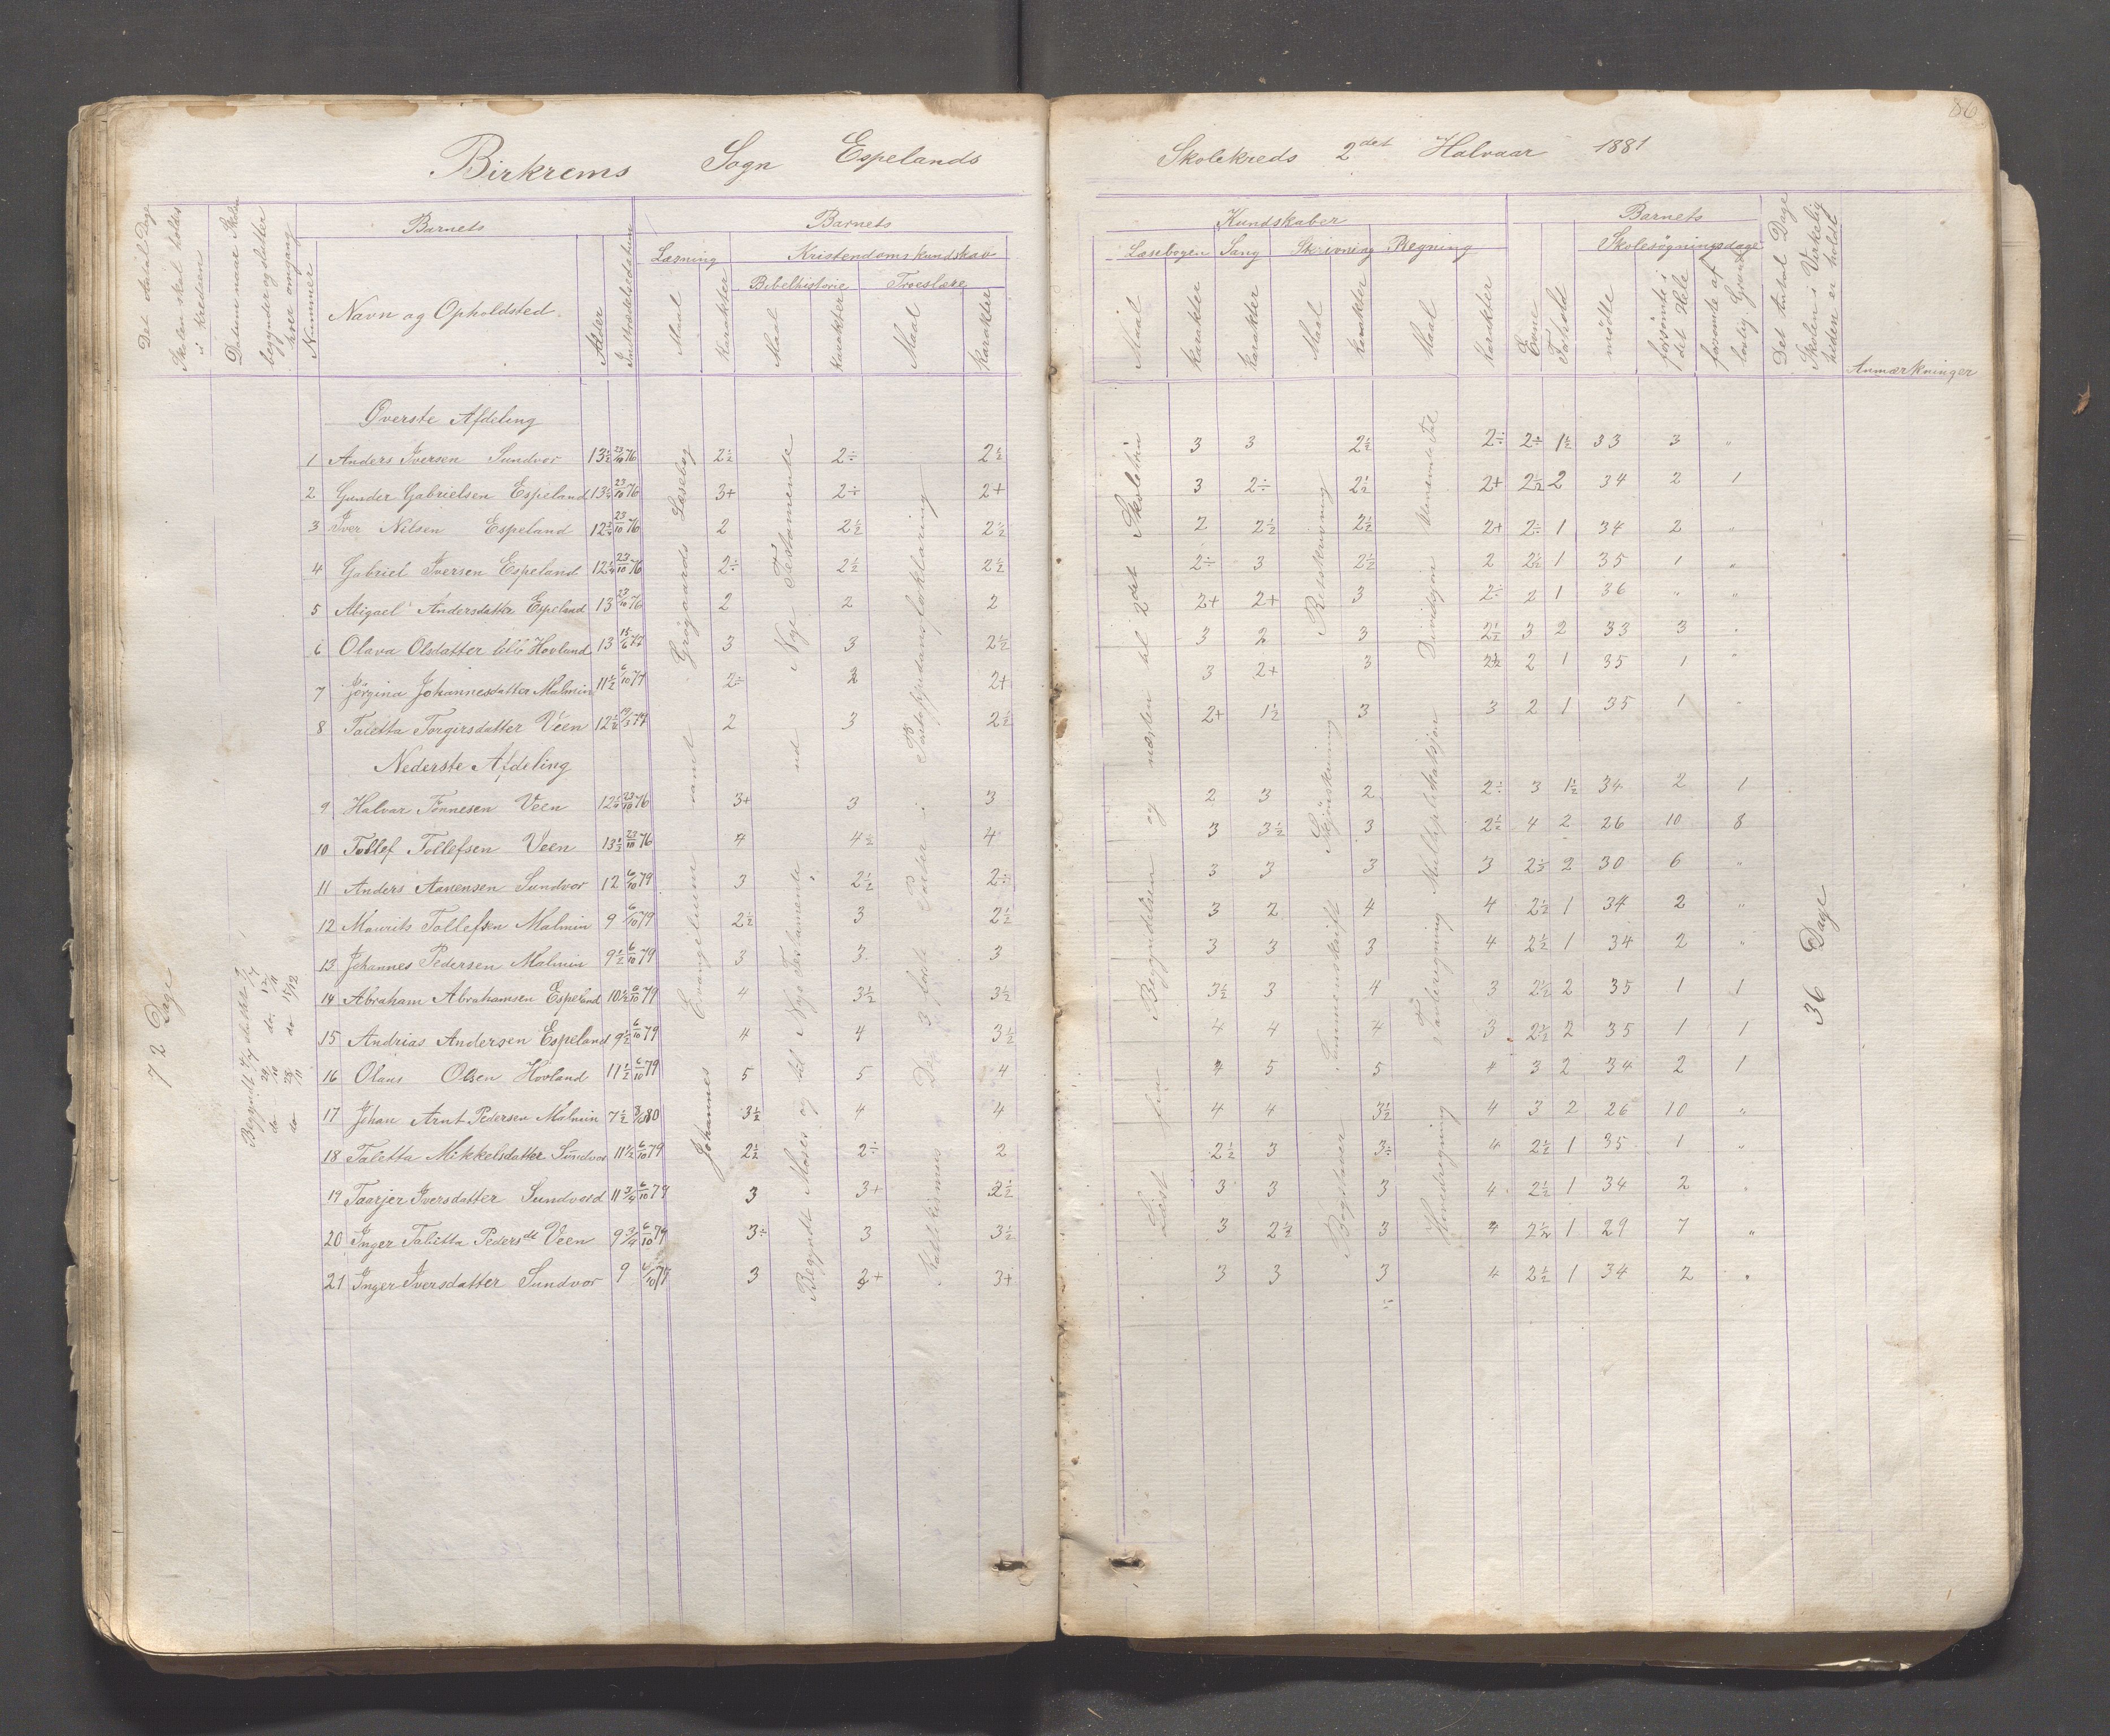 86
Birkrems Sogn Espelands Skolekreds 2det Halvaar 1881
Det Antal Dage Skolen skal holdes i Kredsen
Datum naar Skolen begynder og slutter hver omgang
Nummer
Barnets
Navn og Opholdsted.
Alder
Indtrædelsesdatum
Barnets Kundskaber
Læsning
Maal
Karakter
Kristendomskundskav
Bibelhistorie
Maal
Karakter
Troeslære
Maal
Karakter
Læsebogen
Maal
Karakter
Sang
Karakter
Skrivning
Maal
Karakter
Regning
Maal
Karakter
Barnets
Evne
Forhold
Skolesøgningsdage
mødte
forsömte i det Hele
forsömte af lovlig Grund
Det Antal Dage Skolen i Virkelig heden er holdt
Anmærkninger
Överste Afdeling
1 Anders Iversen Sundvor 13½ 23/10 76 2½ 2÷ 2½ 3 3 2½ 2÷ 2÷ 1½ 33 3 "
2 Gunder Gabrielsen Espeland 13¼ 23/10 76 3+ 2÷ 2+ 3 2÷ 2½ 2+ 2½ 2 34 2 1
3 Iver Nilsen Espeland 12¾ 23/10 76 2 2½ 2½ 2 2½ 2½ 2+ 2÷ 1 34 2 "
4 Gabriel Iversen Espeland 12¼ 23/10 76 2÷ 2½ 2½ 2÷ 3 2½ 2 2½ 1 35 1 "
5 Abigael Andersdatter Espeland 13 23/10 76 2 2 2 2+ 2+ 3 2÷ 2 1 36 " "
6 Olava Olsdatter Hovland 13 15/6 77 3 3 2½ 3 2 3 2½ 3 2 33 3 "
7 Jörgina Johannesdatter Malmin 11½ 6/10 77 2÷ 2 2+ 3 2+ 3 2½ 2 1 35 1 "
8 Taletta Torgirsdatter Veen 12½ 19/3 77 2 3 2½ 2+ 1½ 3 3 2 1 35 1 "
Nederste Afdeling
9 Halvar Tönnesen Veen 12½ 23/10 76 3+ 3 3 2 3 2 2÷ 3 1½ 34 2 1
10 Tollef Tollefsen Veen 13½ 23/10 76 4 4½ 4 3 3½ 3 2½ 4 2 26 10 8
11 Anders Aanensen Sundvor 12 6/10 79 3 2½ 2÷ 3 3 3 3 2½ 2 30 6 "
12 Mourits Tollefsen Malmin 9 6/10 79 2½ 3 2½ 3 2 4 4 2½ 1 34 2 "
13 Johannes Pedersen Malmin 9½ 6/10 79 3 3 3 3 3 3 4 2½ 1 34 2 "
14 Abraham Abrahamsen Espeland 10½ 6/10 79 4 3½ 3½ 3½ 3 4 3 2½ 2 35 1 1
15 Andrias Andersen Espeland 9½ 6/10 79 4 4 3½ 4 4 4 3 2½ 2 35 1 1
16 Olaus Olsen Hovland 11½ 6/10 79 5 5 4 4 5 5 4 3 2 34 2 1
17 Johan Arnt Pedersen Malmin 7½ 80 3½ 4 4 4 4 3½ 4 3 2 26 10 "
18 Taletta Mikkelsdatter Sundvor 11½ 6/10 79 2½ 2÷ 2 2½ 3 3÷ 4 2½ 1 35 1 "
19 Taarjer Iversdatter Sundvord 11¾ 6/10 79 3 3+ 2½ 3 3 3 4 2½ 1 34 2 "
20 Inger Talitta Pedersdt Veen 9¾ 6/10 79 3÷ 3 3½ 3 2½ 3 4 2½ 1 29 7 "
21 Inger Iversdatter Sundvor 9 3 2+ 3+ 3 3 3 4 2½ 1 34 2 "
72 Dage
Johannes Evangelium samt Grögaards Læsebog
Begyndt Moses og til Nyo Testamente. ud Nye Testamente
Katekismus De 3 förste Parter i Pontoppidans forklaring
Læst fra Begyndelsen og næsten til 2det Skoletrin
Bogstaver Sammenskrift Skjönskrivning Retskrivning
Hovedregning Tavleregning Multiplikatsjon Divisjon Ubenævnte Tal
36 Dage